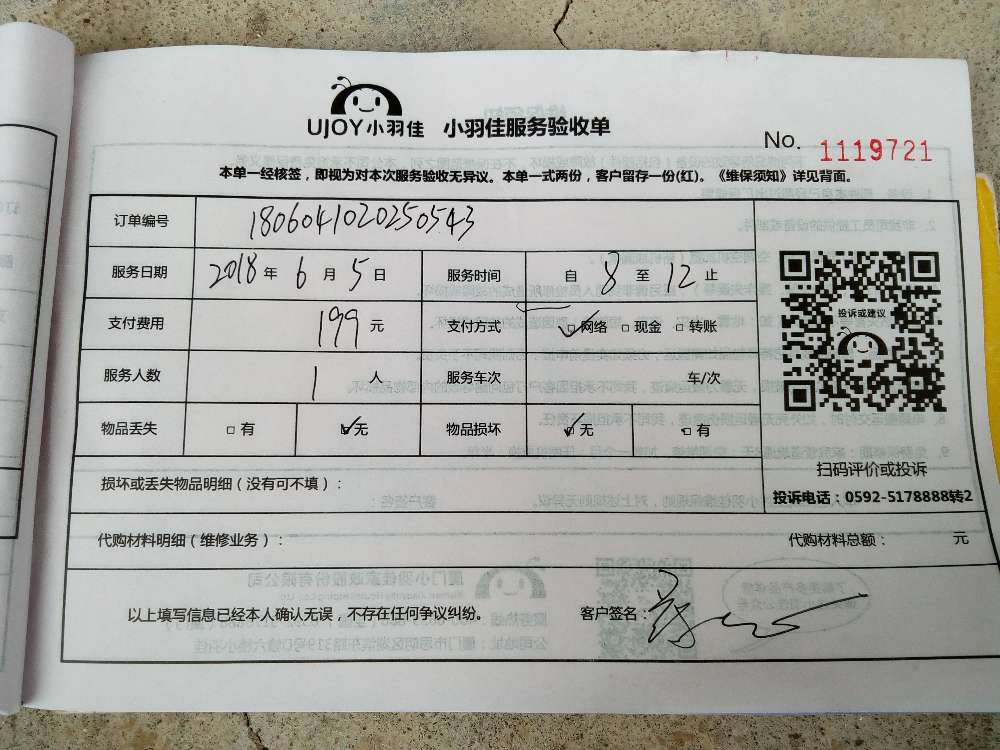 UJOY小羽佳 小羽佳服务验收单
No. 1119721
本单一经核签，即视为对本次服务验收无异议。本单一式两份，客户留存一份(红)。《维保须知》详见背面。
订单编号 1806041020250543
服务日期 2018 年 6 月 5 日 服务时间 自 8 至 12 止
支付费用 199 元 支付方式 ☑网络 □现金 □转账
服务人数 1 人 服务车次 车/次
物品丢失 □有 ☑无 物品损坏 ☑无 □有
投诉或建议
扫码评价或投诉
投诉电话：0592-5178888转2
损坏或丢失物品明细（没有可不填）：
代购材料明细（维修业务）： 代购材料总额： 元
以上填写信息已经本人确认无误，不存在任何争议纠纷。 客户签名：